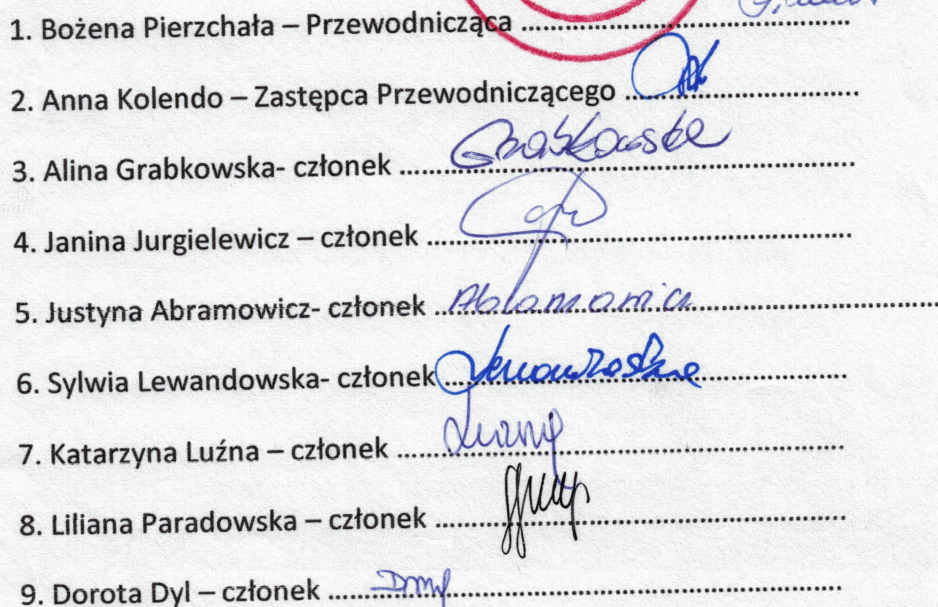 1. Bożena Pierzchała – Przewodnicząca ........................................
2. Anna Kolendo – Zastępca Przewodniczącego .............................
3. Alina Grabkowska- członek ........................................................ Grabkowska
4. Janina Jurgielewicz – członek ....................................................
5. Justyna Abramowicz- członek .................................................... Abramowicz
6. Sylwia Lewandowska- członek .................................................. Lewandowska
7. Katarzyna Luźna – członek ....................................................... Luźna
8. Liliana Paradowska – członek ...................................................
9. Dorota Dyl – członek ................................................................